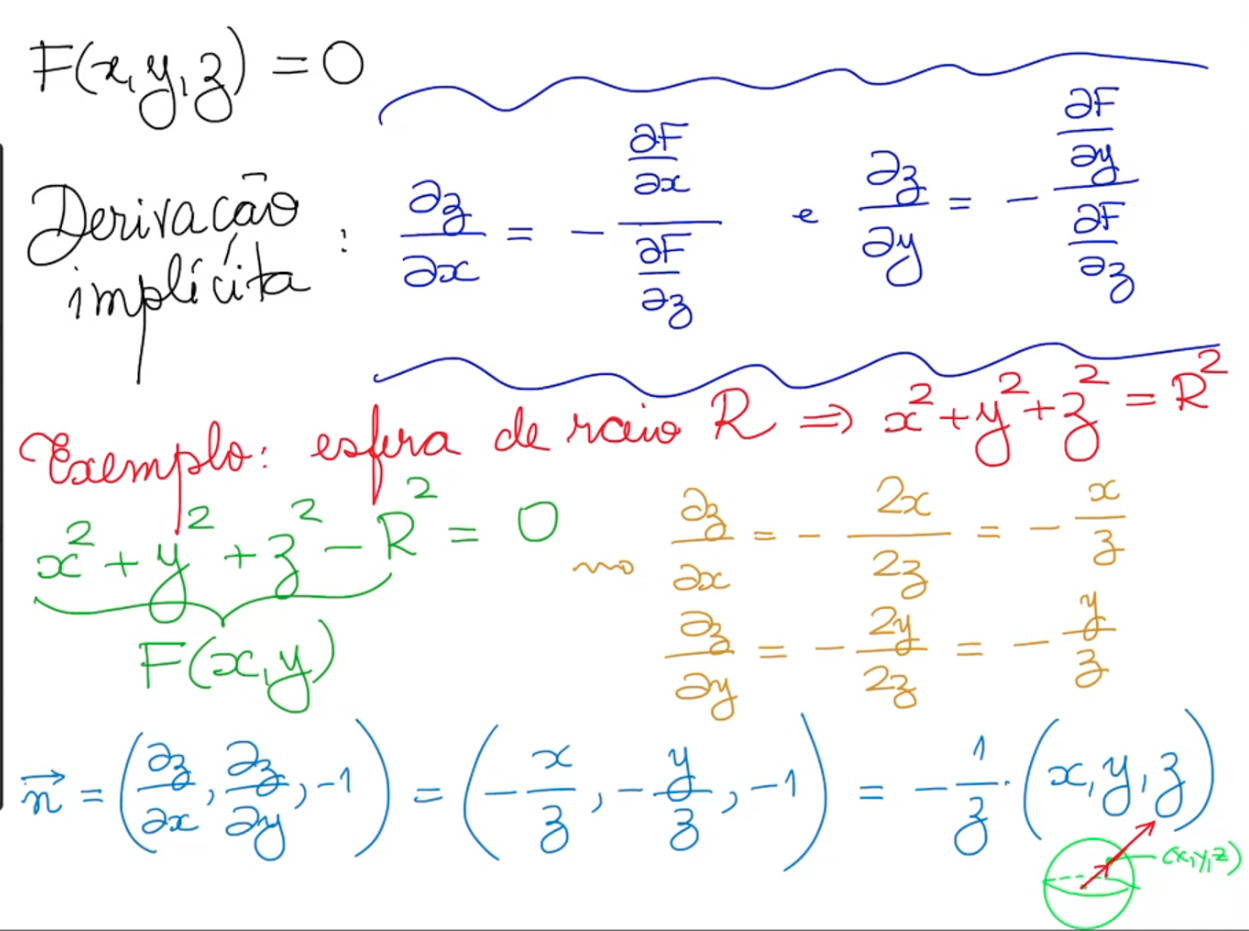 F(x,y,z) = 0
Derivação implícita : ∂z/∂x = - (∂F/∂x)/(∂F/∂z) e ∂z/∂y = - (∂F/∂y)/(∂F/∂z)
Exemplo: esfera de raio R ⇒ x² + y² + z² = R²
x² + y² + z² - R² = 0
F(x,y)
∂z/∂x = - 2x/2z = - x/z
∂z/∂y = - 2y/2z = - y/z
n⃗ = (∂z/∂x, ∂z/∂y, -1) = (- x/z, - y/z, -1) = - 1/z · (x,y,z)
(x,y,z)